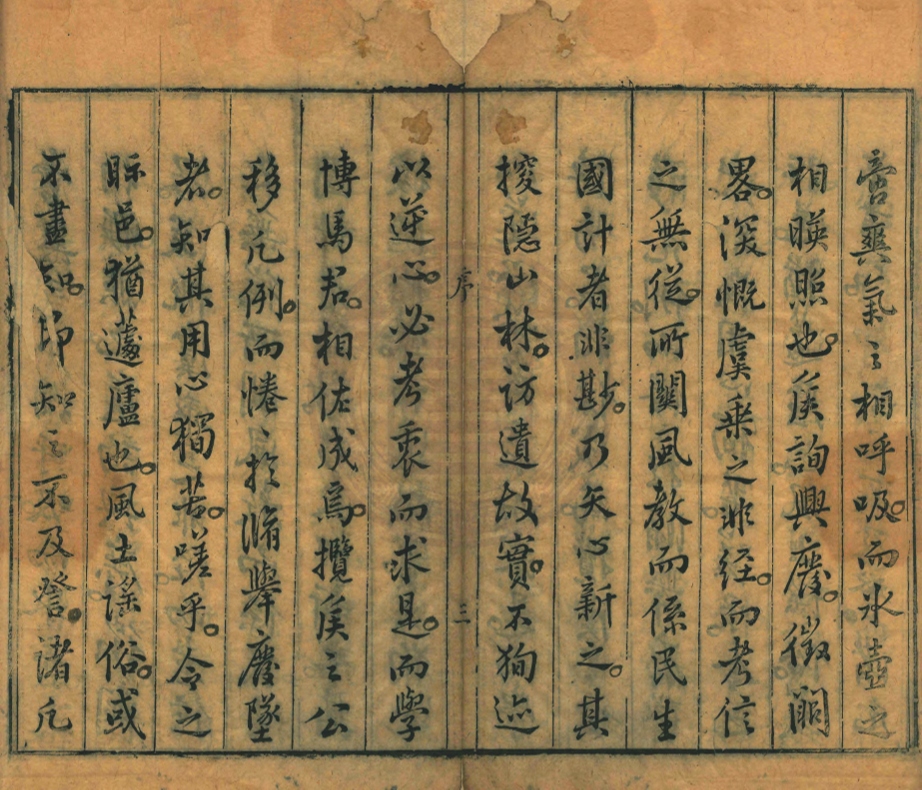 啻爽氣之相呼吸。而氷壺之
相暎照也。矦詢興廢。徵闊
畧。深慨虞乗之非経。而考信
之無從。所關風教而係民生
國計者非尠。乃矢心新之。其
搜隱山林。訪遺故實。不狥迹
以逆心。必考衷而求是。而學
博馬君。相佐成焉。攬矦之公
移凡例。而惓〻於脩舉廢墜
者。知其用心獨苦。嗟乎。令之
眎邑。猶蘧廬也。風土謡俗。或
不盡知。即知之不及登。諸凡
序
三